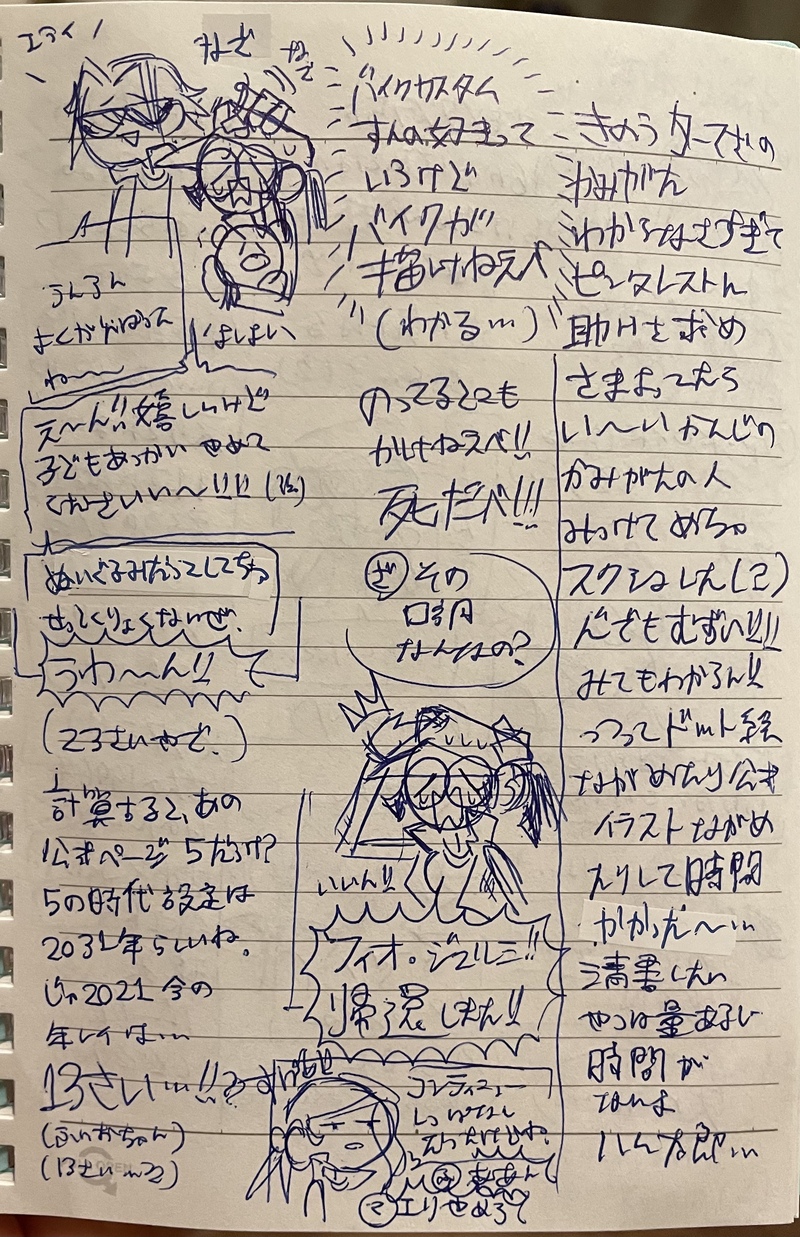 エライ
なで
なで
うんうん
よくがんばった
ね〜〜
はいはい
え〜ん!!嬉しいけど
子どもあつかいやめて
くださいい〜!!!!
ぬいぐるみだっこしてちゃ
せっとくりょくないぜ
うわ〜〜ん!!
(23さいやで。)
計算すると、あの
公式ページ5だろけ?
5の時代設定は
2031年らしいね。
じゃ2021今の
年レイは…
13さい…!!
(ふぃおちゃん)
(13さい…)
バイクカスタム
すんの好きって
いうけど
バイクが
描けねえべ
(わかる…)
のってるとこも
かけねえべ!!
死だべ!!!
その
口調
なんなの?
いいん!!
フィオ・ジェルミ!!
帰還しました!!
コンティニュー
しっぱなし
だったけどね。
エリやめろて
きのうターマさんの
かみがた
わかんなさすぎて
ピンタレストに
助けを求め
さまよってたら
い〜いかんじの
かみがたの人
みつけてめちゃ
スクショした(2)
んでもむずい!!!
みてもわからん!!
っつってドット絵
ながめたり公式
イラストながめ
たりして時間
かかった〜…
清書したい
やつは量あるし
時間が
ないよ
ハム太郎…